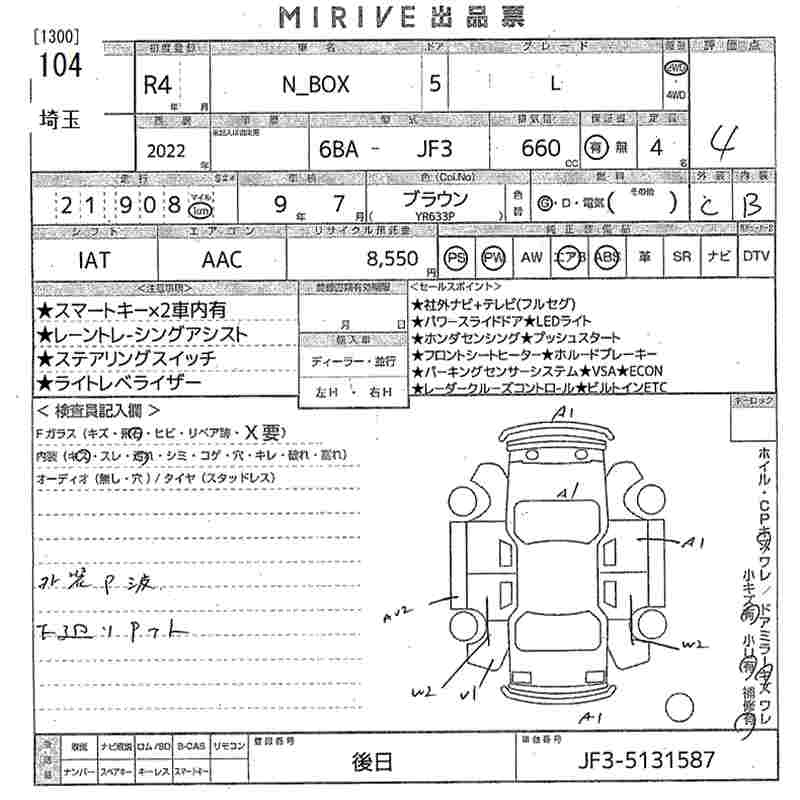 MIRIVE 出品票
[1300]
104
埼玉
初度登録 車名 ドア グレード 評価点
R4 年 月 N_BOX 5 L 2WD 4WD 4
2022 年 6BA - JF3 排気量 660 cc 有 無 定員 4 名
走行 車検 色(Col.No) 燃料 外装 内装
21908 マイル km 9 年 7 月 ブラウン ( YR633P ) 色替 G・ロ・電気( その他 ) C B
シフト エアコン リサイクル預託金 純正装備品
IAT AAC 8,550 円 PS PW AW エアB ABS 革 SR ナビ DTV
<注意事項>
★スマートキー×2車内有
★レーントレーシングアシスト
★ステアリングスイッチ
★ライトレベライザー
月 日
輸入車
ディーラー・並行
左H ・ 右H
<セールスポイント>
★社外ナビ+テレビ(フルセグ)
★パワースライドドア★LEDライト
★ホンダセンシング★プッシュスタート
★フロントシートヒーター★ホルードブレーキー
★パーキングセンサーシステム★VSA★ECON
★レーダークルーズコントロール★ビルトインETC
キーロック
< 検査員記入欄 >
Fガラス (キズ・飛石・ヒビ・リペア跡・X要)
内装 (キズ・スレ・汚れ・シミ・コゲ・穴・キレ・破れ・割れ)
オーディオ (無し・穴) / タイヤ (スタッドレス)
外装P波
下廻りPケト
A1
A1
A1
AU2
W2
W2
U1
A1
ホイル・CPキズワレ / ドアミラーキズワレ
小キズ有 小U有 補修有
取説 ナビ取説 ロム/SD B-CAS リモコン
ナンバー スペアキー キーレス スマートキー
登録番号
後日
車台番号
JF3-5131587